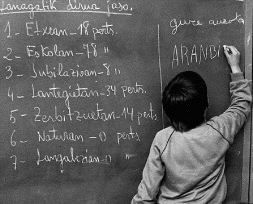 Lanagatik dirua jaso.
1 - Etxean - 18 perts.
2 - Eskolan - 78 "
3 - Jubilazioan - 8 "
4 - Lantegietan - 34 perts.
5 - Zerbitzuetan - 14 perts.
6 - Naturan - 0 perts
7 - Langabezian - 0 "
gure
ARANBI